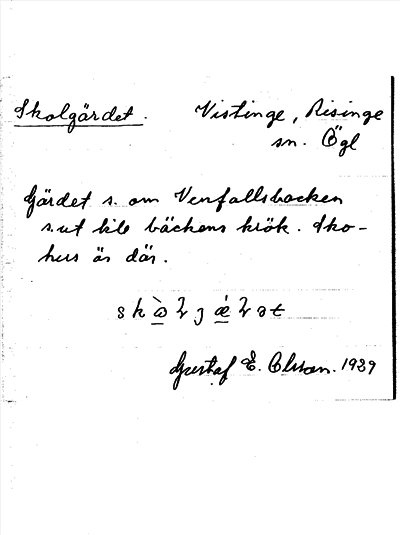 Skolgärdet. Vistinge, Risinge
sn. Ögl
Gärdet s. om Venfallsbacken
s.ut till bäckens krök. Sko-
hus är där.
Gustaf E. Olsson. 1939